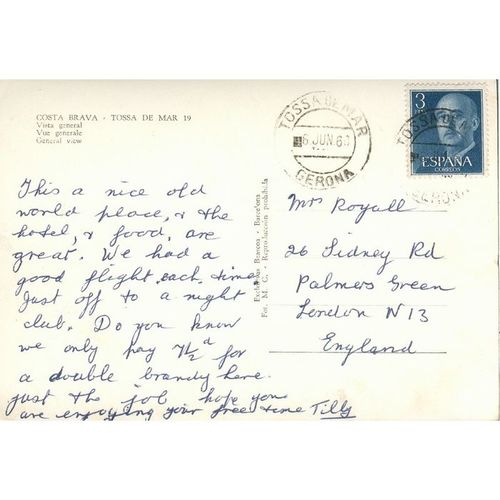 COSTA BRAVA - TOSSA DE MAR 19
Vista general
Vue generale
General view
This a nice old
world place, & the
hotel, & food, are
great. We had a
good flight each time
Just off to a night
club. Do you know
we only pay 7½d for
a double brandy here.
just the job hope you
are enjoying your free time Tilly
TOSSA DE MAR
6 JUN 6
GERONA
3
ESPAÑA
CORREOS
TOSSA DE
GERONA
Barcelona
Fot. M. C. Reproducción prohibida
Mrs Royall
26 Sidney Rd
Palmers Green
London N13
England